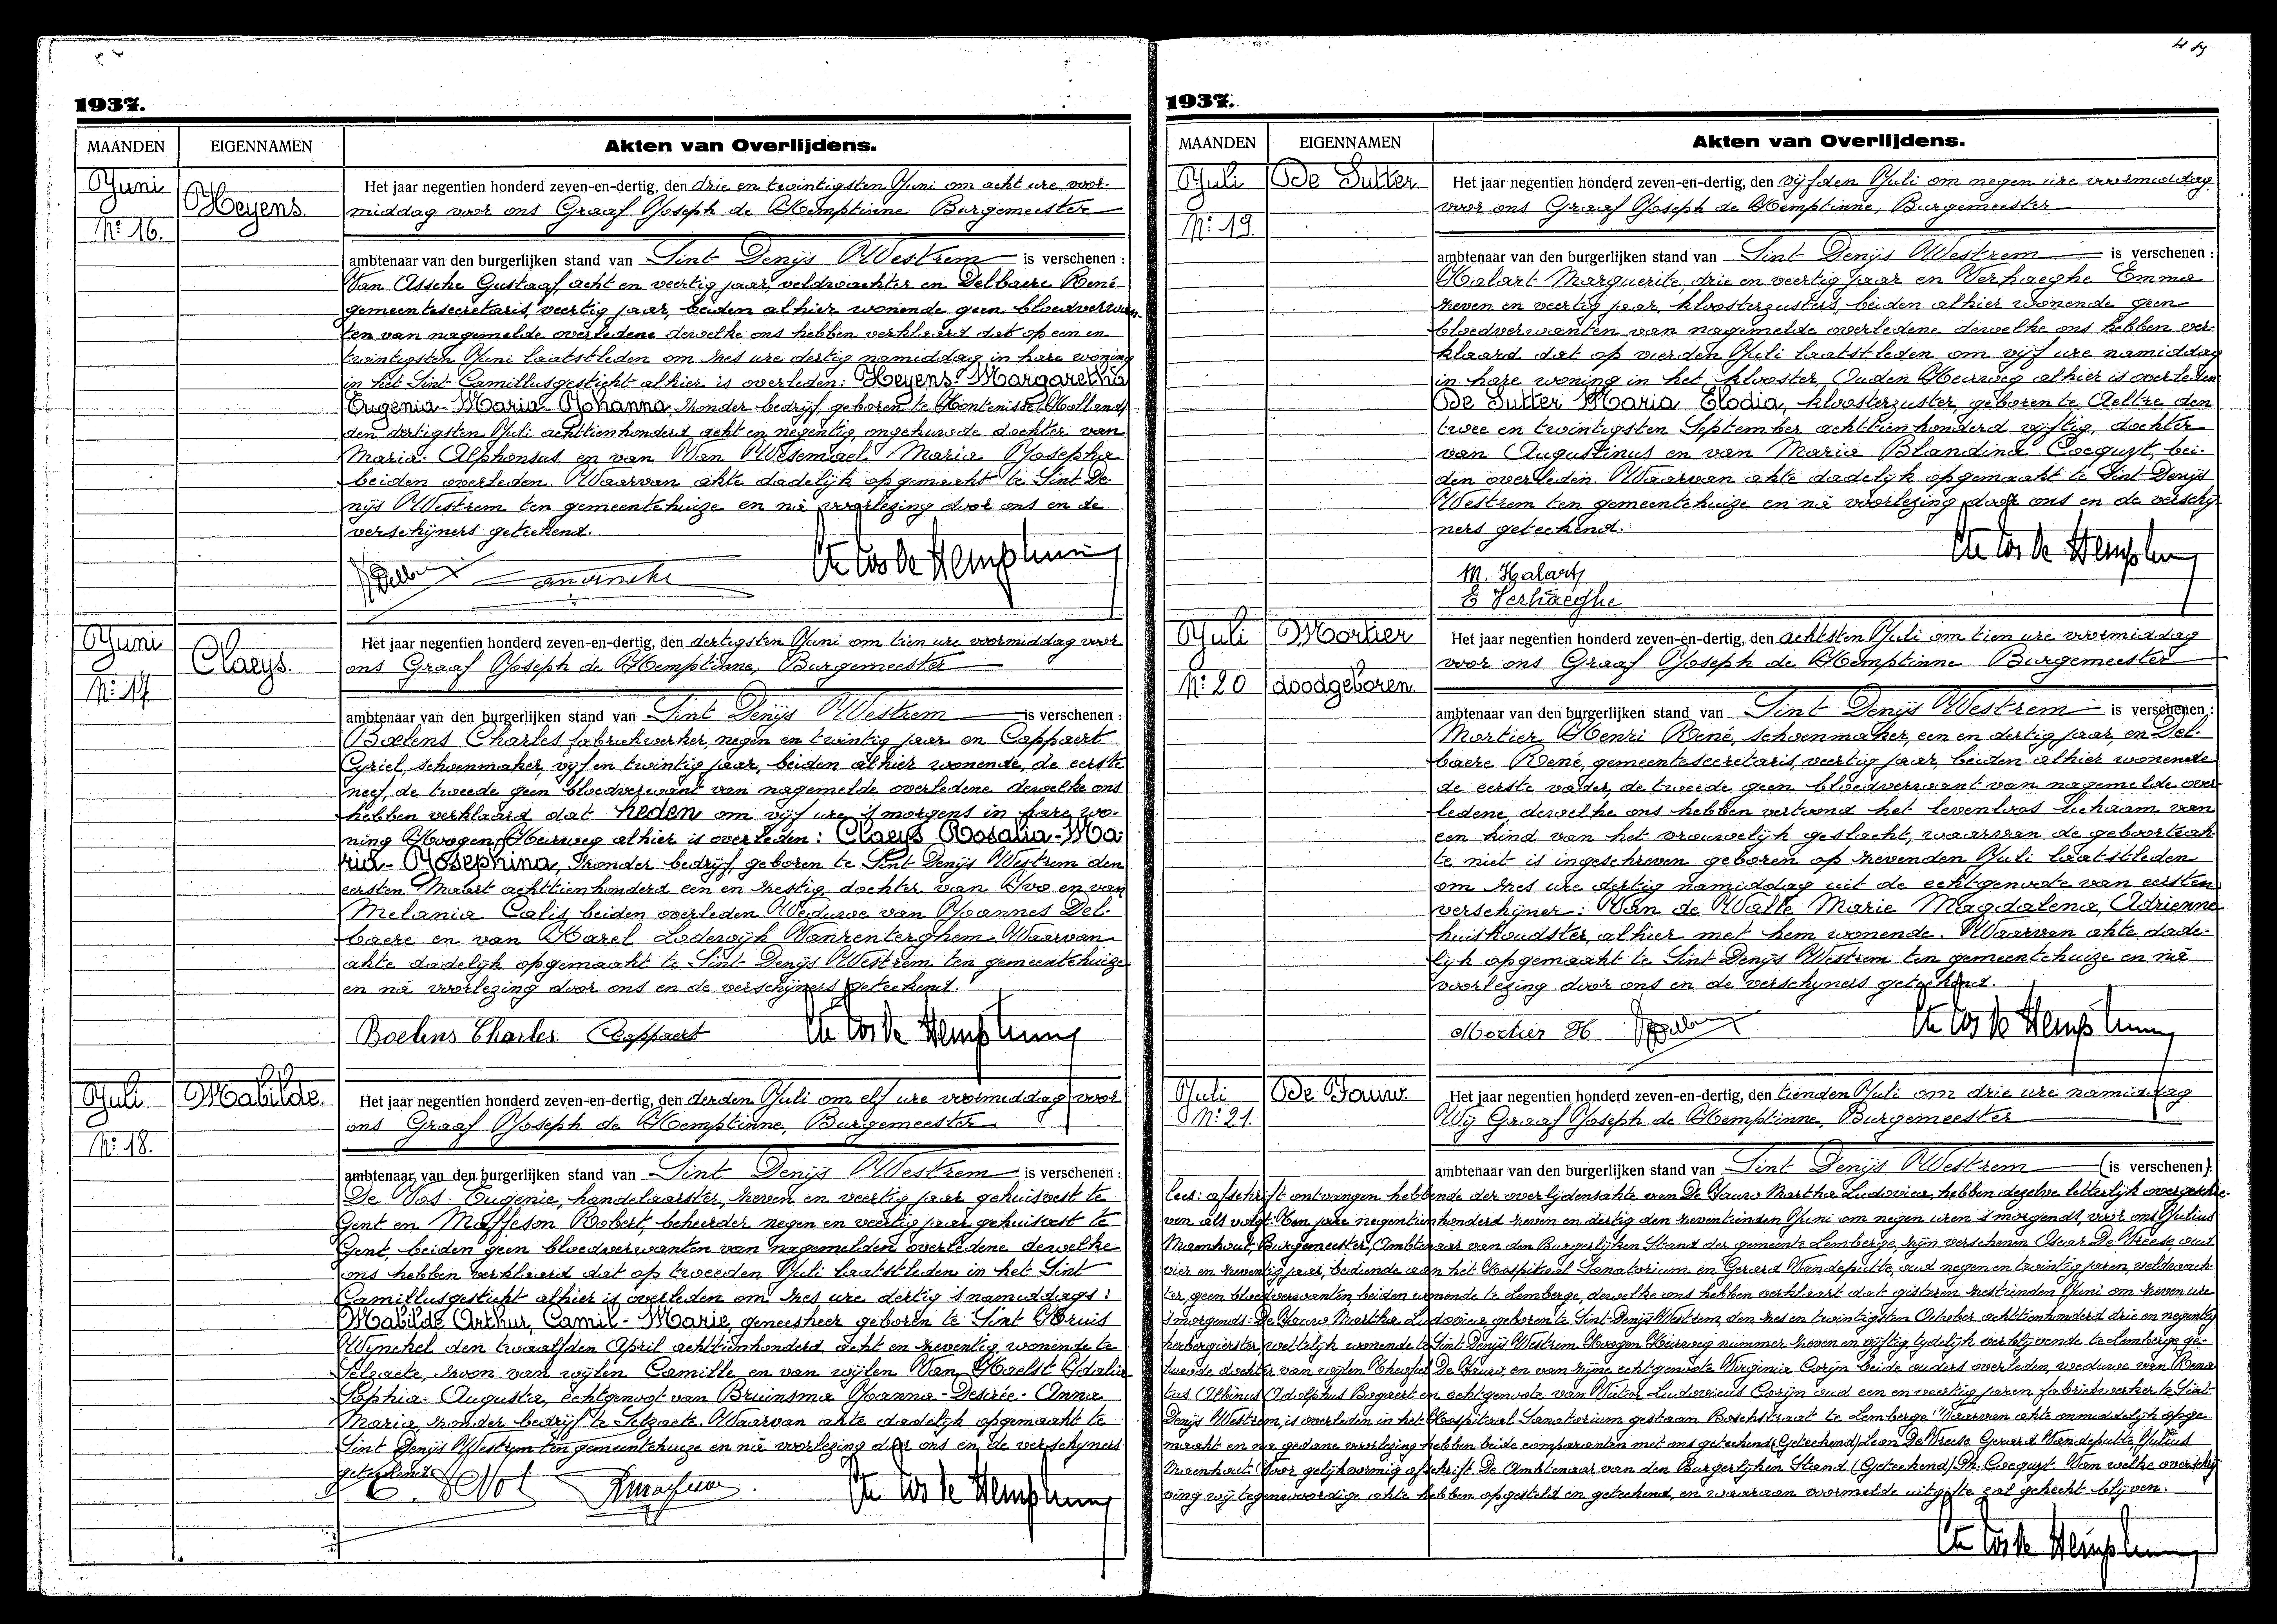 1937.
MAANDEN EIGENNAMEN Akten van Overlijdens.
Juni
Heyens.
Nº 16.
Het jaar negentien honderd zeven-en-dertig, den drie en twintigsten Juni om acht ure voor-
middag voor ons Graaf Joseph de Hemptinne Burgemeester
ambtenaar van den burgerlijken stand van Sint Denijs Westrem is verschenen :
Van Assche Gustaaf, acht en veertig jaar, veldwachter en Delbaere René
gemeentesecretaris, veertig jaar, beiden alhier wonende geen bloedverwan-
ten van nagemelde overledene dewelke ons hebben verklaard dat op een en
twintigsten Juni laatstleden om zes ure dertig namiddag in hare woning
in het Sint Camillusgesticht alhier is overleden: Heyens Margaretha
Eugenia-Maria-Johanna, zonder bedrijf geboren te Hontenisse (Holland)
den dertigsten Juli achttienhonderd acht en negentig, ongehuwde dochter van
Maria-Alphonsus en van Van Wesemael Maria Josepha
beiden overleden. Waarvan akte dadelijk opgemaakt te Sint De-
nijs Westrem ten gemeentehuize en na voorlezing door ons en de
verschijners geteekend.
Juni
Claeys.
Nº 17
Het jaar negentien honderd zeven-en-dertig, den dertigsten Juni om tien ure voormiddag voor
ons Graaf Joseph de Hemptinne, Burgemeester
ambtenaar van den burgerlijken stand van Sint Denijs Westrem is verschenen :
Boelens Charles fabriekwerker, negen en twintig jaar en Coppaert
Cyriel, schoenmaker, vijf en twintig jaar, beiden alhier wonende, de eerste
neef, de tweede geen bloedverwant van nagemelde overledene dewelke ons
hebben verklaard dat heden om vijf ure 's morgens in hare wo-
ning Hoogen Heirweg alhier is overleden: Claeys Rosalia-Ma-
ria-Josephina, zonder bedrijf, geboren te Sint Denijs Westrem den
eersten Maart achttienhonderd een en zestig, dochter van Ivo en van
Melania Calis, beiden overleden Weduwe van Joannes Del-
baere en van Karel Lodewijk Vanrenterghem. Waarvan
akte dadelijk opgemaakt te Sint Denijs Westrem ten gemeentehuize
en na voorlezing door ons en de verschijners geteekend.
Boelens Charles Coppaert
Juli
Mabilde.
Nº 18.
Het jaar negentien honderd zeven-en-dertig, den derden Juli om elf ure voormiddag voor
ons Graaf Joseph de Hemptinne, Burgemeester
ambtenaar van den burgerlijken stand van Sint Denijs Westrem is verschenen :
De Vos Eugenie, handelaarster, zeven en veertig jaar gehuisvest te
Gent en Maffeson Robert, beheerder negen en veertig jaar gehuisvest te
Gent, beiden geen bloedverwanten van nagemelden overledene dewelke
ons hebben verklaard dat op tweeden Juli laatstleden in het Sint
Camillusgesticht alhier is overleden om zes ure dertig 's namiddags:
Mabilde Arthur, Camil-Marie, geneesheer geboren te Sint Kruis
Wynckel den twaalfden April achttienhonderd acht en zeventig, wonende te
Selzaete, zoon van wijlen Camille en van wijlen Van Haelst Idalia
Sophia-Augusta, echtgenoot van Bruinsma Joanna-Desirée-Anna
Maria, zonder bedrijf te Selzaete. Waarvan akte dadelijk opgemaakt te
Sint Denijs Westrem ten gemeentehuize en na voorlezing door ons en de verschijners
geteekend.
1937.
MAANDEN EIGENNAMEN Akten van Overlijdens.
Juli De Sutter
Nº 19.
Het jaar negentien honderd zeven-en-dertig, den vijfden Juli om negen ure voormiddag
voor ons Graaf Joseph de Hemptinne, Burgemeester
ambtenaar van den burgerlijken stand van Sint Denijs Westrem is verschenen :
Halart Marguerite, drie en veertig jaar en Verhaeghe Emma
zeven en veertig jaar, kloosterzusters, beiden alhier wonende geen
bloedverwanten van nagemelde overledene dewelke ons hebben ver-
klaard dat op vierden Juli laatstleden om vijf ure namiddag
in hare woning in het klooster, Ouden Heirweg alhier is overleden
De Sutter Maria Elodia, kloosterzuster, geboren te Aeltre den
twee en twintigsten September achttienhonderd vijftig, dochter
van Augustinus en van Maria Blandina Coeguyt, bei-
den overleden. Waarvan akte dadelijk opgemaakt te Sint Denijs
Westrem ten gemeentehuize en na voorlezing door ons en de verschij-
ners geteekend.
M. Halart
E Verhaeghe
Juli Mortier
Nº 20 doodgeboren.
Het jaar negentien honderd zeven-en-dertig, den achtsten Juli om tien ure voormiddag
voor ons Graaf Joseph de Hemptinne Burgemeester
ambtenaar van den burgerlijken stand van Sint Denijs Westrem is verschenen :
Mortier Henri René, schoenmaker, een en dertig jaar, en Del-
baere René, gemeentesecretaris, veertig jaar, beiden alhier wonende
de eerste vader, de tweede geen bloedverwant van nagemelde over-
ledene, dewelke ons hebben vertoond het levenloos lichaam van
een kind van het vrouwelijk geslacht, waarvan de geboorteak-
te niet is ingeschreven geboren op zevenden Juli laatstleden
om zes ure dertig namiddag uit de echtgenoote van eersten
verschijner: Van de Walle Marie Magdalena, Adrienne
huishoudster, alhier met hem wonende. Waarvan akte dade-
lijk opgemaakt te Sint Denijs Westrem ten gemeentehuize en na
voorlezing door ons en de verschijners geteekend.
Mortier H
Juli De Pauw.
Nº 21.
Het jaar negentien honderd zeven-en-dertig, den tienden Juli om drie ure namiddag
Wij Graaf Joseph de Hemptinne, Burgemeester
ambtenaar van den burgerlijken stand van Sint Denijs Westrem (is verschenen):
lees: afschrift ontvangen hebbende der overlijdensakte van De Pauw Martha Ludovica, hebben dezelve letterlijk overgeschre-
ven als volgt: Ten jare negentienhonderd zeven en dertig den zeventienden Juni om negen uren 's morgends, voor ons Julius
Maenhout, Burgemeester, Ambtenaar van den Burgerlijken Stand der gemeente Lemberge, zijn verschenen De Vreese, oud
vier en zeventig jaar, bediende aan het Hospitaal Sanatorium en Gerard Vandeputte, oud negen en twintig jaren, veldwach-
ter, geen bloedverwanten, beiden wonende te Lemberge, dewelke ons hebben verklaart dat gisteren zestienden Juni om zeven ure
's morgends De Pauw Martha Ludovica, geboren te Sint-Denijs-Westrem, den zes en twintigsten October achttienhonderd drie en negentig
herbergierster, wettelijk wonende te Sint Denijs Westrem Hoogen Heirweg nummer zeven en vijftig tijdelijk verblijvende te Lemberge ge-
huwde dochter van wijlen Theofiel De Pauw, en van zijne echtgenoote Virginia Corijn beide ouders overleden, weduwe van Rena-
tus Albinus Adolphus Bogaert en echtgenoote van Victor Ludovicus Corijn oud een en veertig jaren fabriekwerker te Sint
Denijs Westrem, is overleden in het Hospitaal Sanatorium gestaan Boschstraat te Lemberge. Waarvan akte onmiddelijk opge-
maakt en na gedane voorlezing hebben beide comparanten met ons geteekend. (Geteekend) Leon De Vreese Gerard Vandeputte, Julius
Maenhout. Voor gelijkvormig afschrift De Ambtenaar van den Burgerlijken Stand (Geteekend) Coeguyt. Van welke overschrij-
ving wij tegenwoordige akte hebben opgesteld en geteekend, en waaraan voormelde uitgifte zal gehecht blijven.